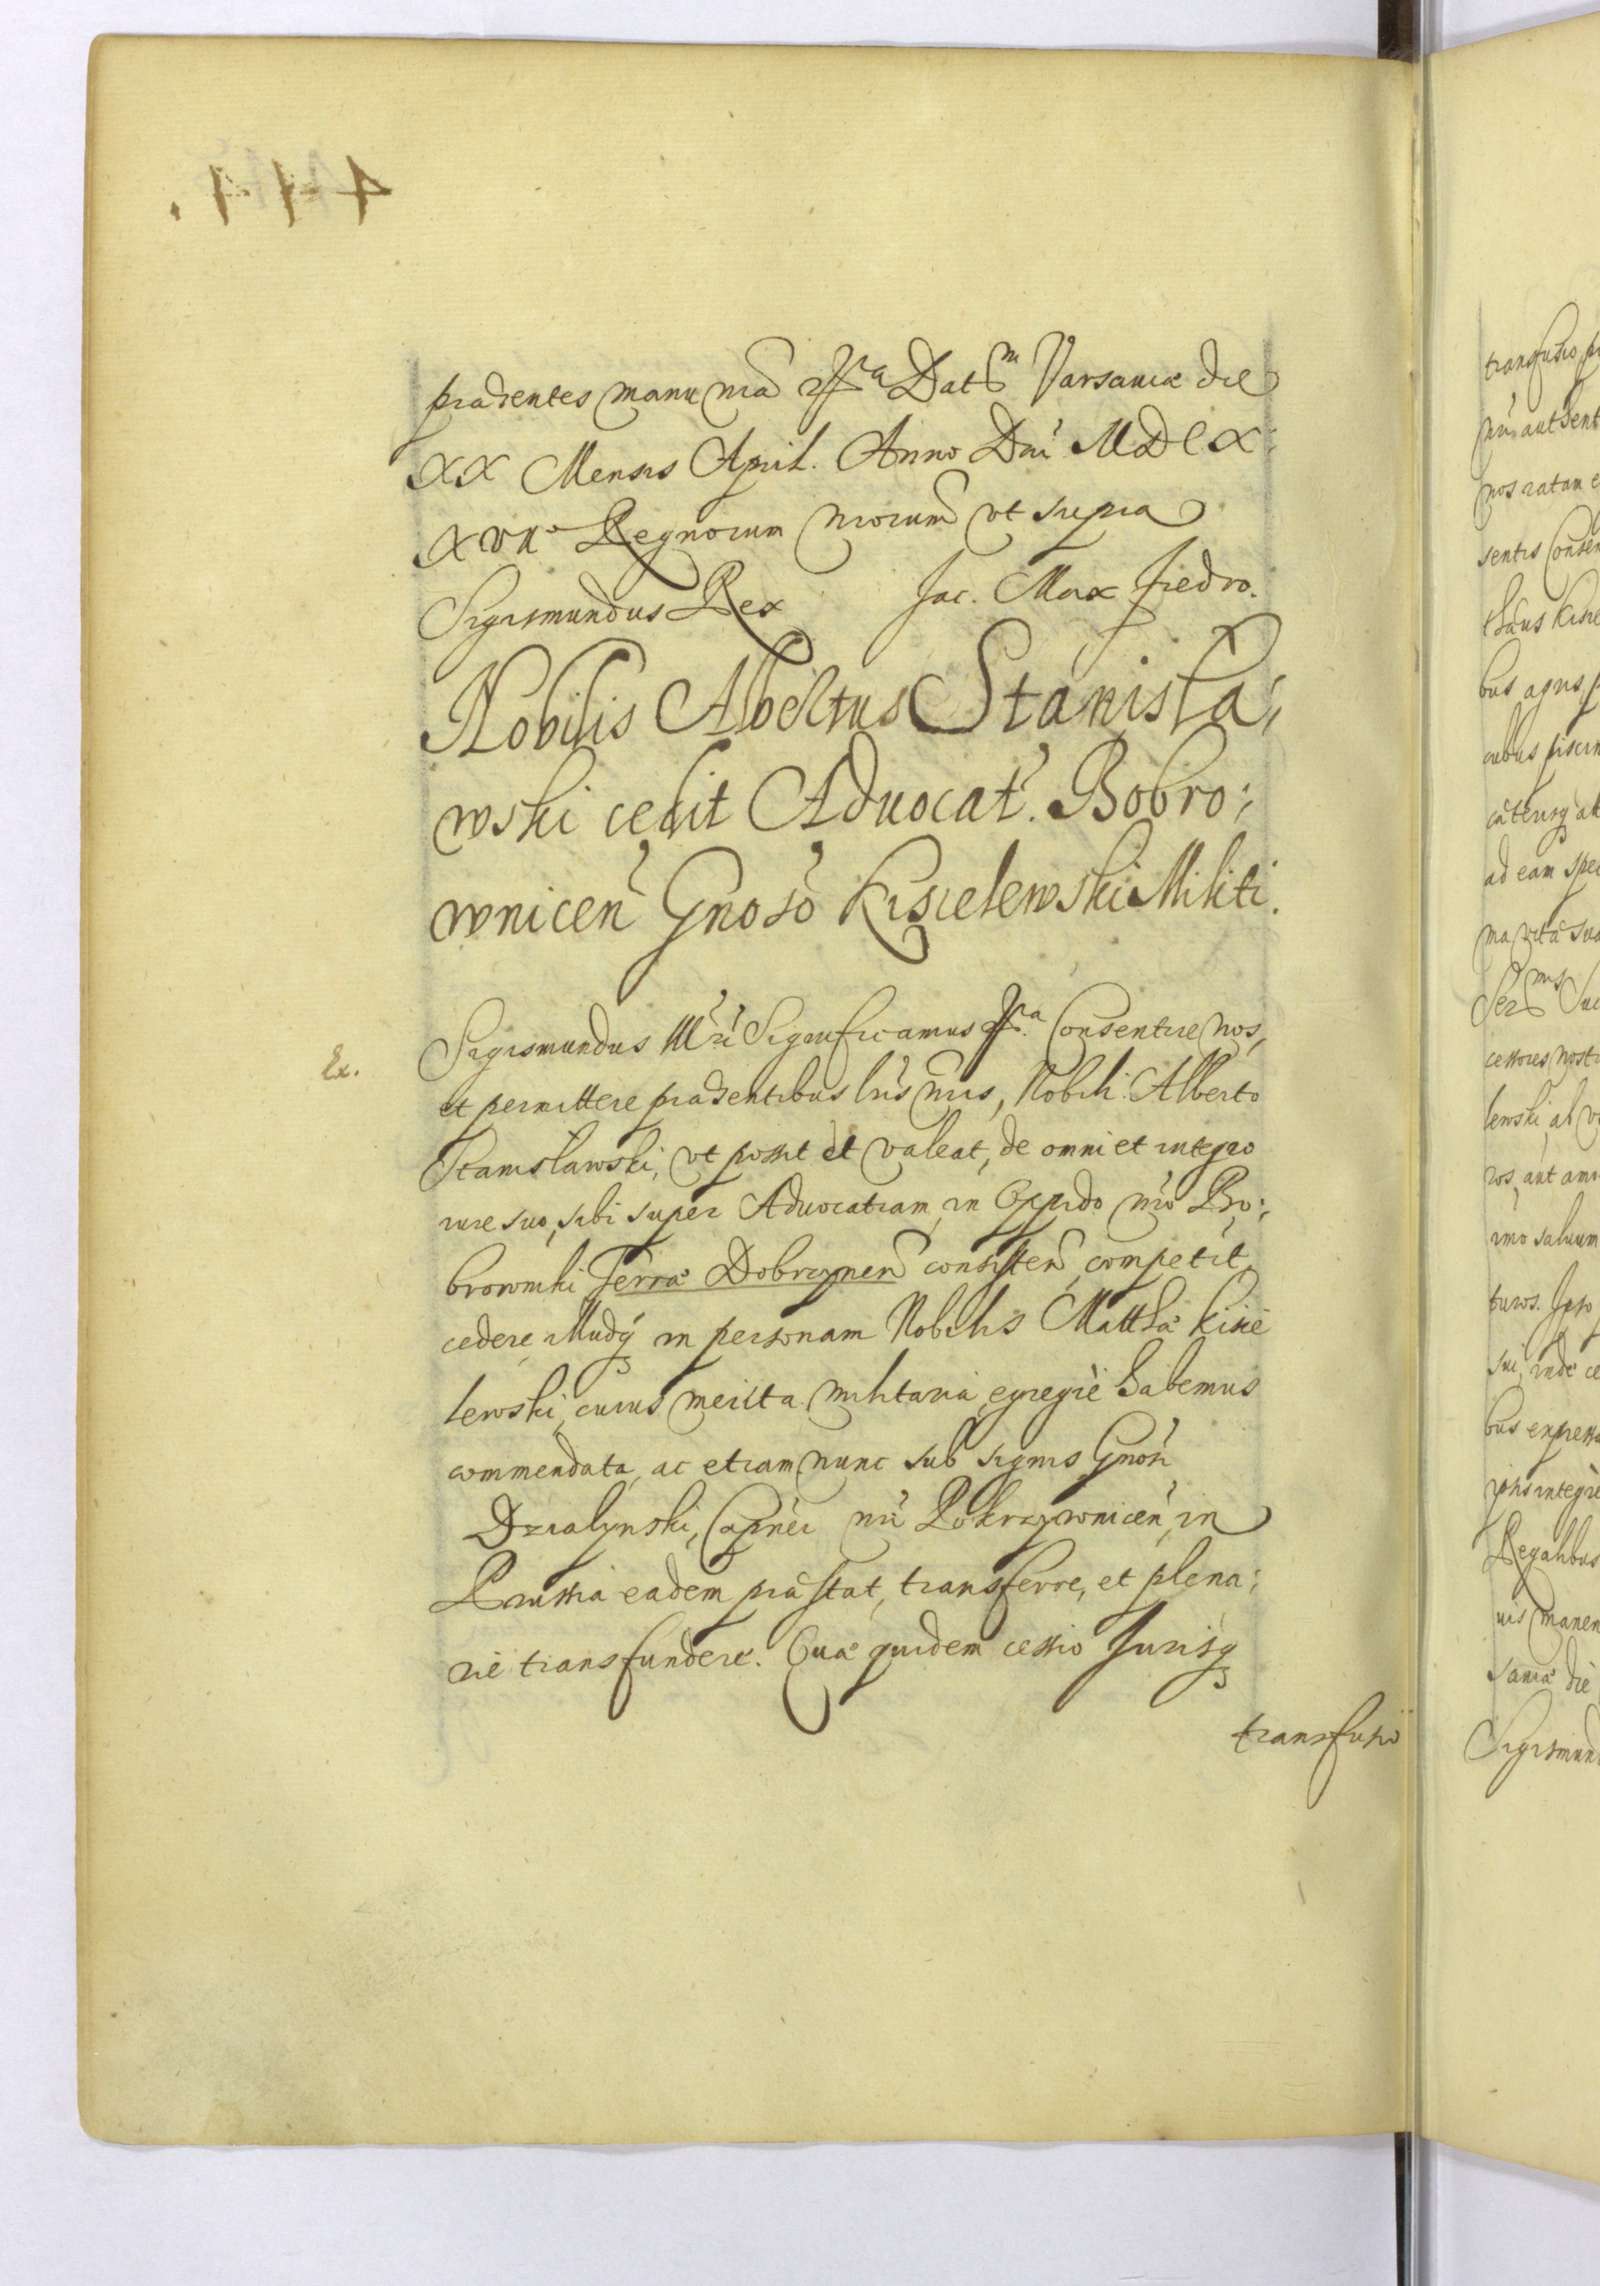 præsentes manu nrã &c.ª Dat.m Varsaviæ die
XX Mensis April. Anno Dni MDCX:
XVIIº Regnorum nrorum ut supra
Sigismundus Rex Jac. Max Fredro.
Nobilis Albertus Stanisla:
wski cedit Aduocat. Bobro:
wnicen Gnoso Kisielewski Militi.
Ex.
Sigismundus IIIri Significamus &c.ª Consentire nos,
et permittere præsentibus lris nris, Nobili Alberto
Stanisławski, vt possit et valeat, de omni et integro
iure suo, sibi super Aduocatiam, in Oppido nro Bo:
browniki Terræ Dobrzynen consisten, competit,
cedere, illudq; in personam Nobilis Matthæ Kisie
lewski, cuius merita militaria, egregiè habemus
commendata, ac etiam nunc sub signis Gnosi
Dzialynski, Capnei nri Pokrzywnicen, in
Prussia eadem præstat, transferre, et plena:
riè transfundere. Quæ quidem cessio Jurisq;
transfusio
transfusio
nri, authent
nos ratam
sentis Consen
thæus Kisie
bus agris,
cubus piscin
cæterisq; al
ad eam spec
ma vita sua
Ser.mus Suc
cessores nostr
lewski, ab
ros, aut ami
imo saluum
turos. Jpso
sui, inde ce
bus expressa
ipsis integre
Regalibus
uis manen
sauiæ die
Sigismund